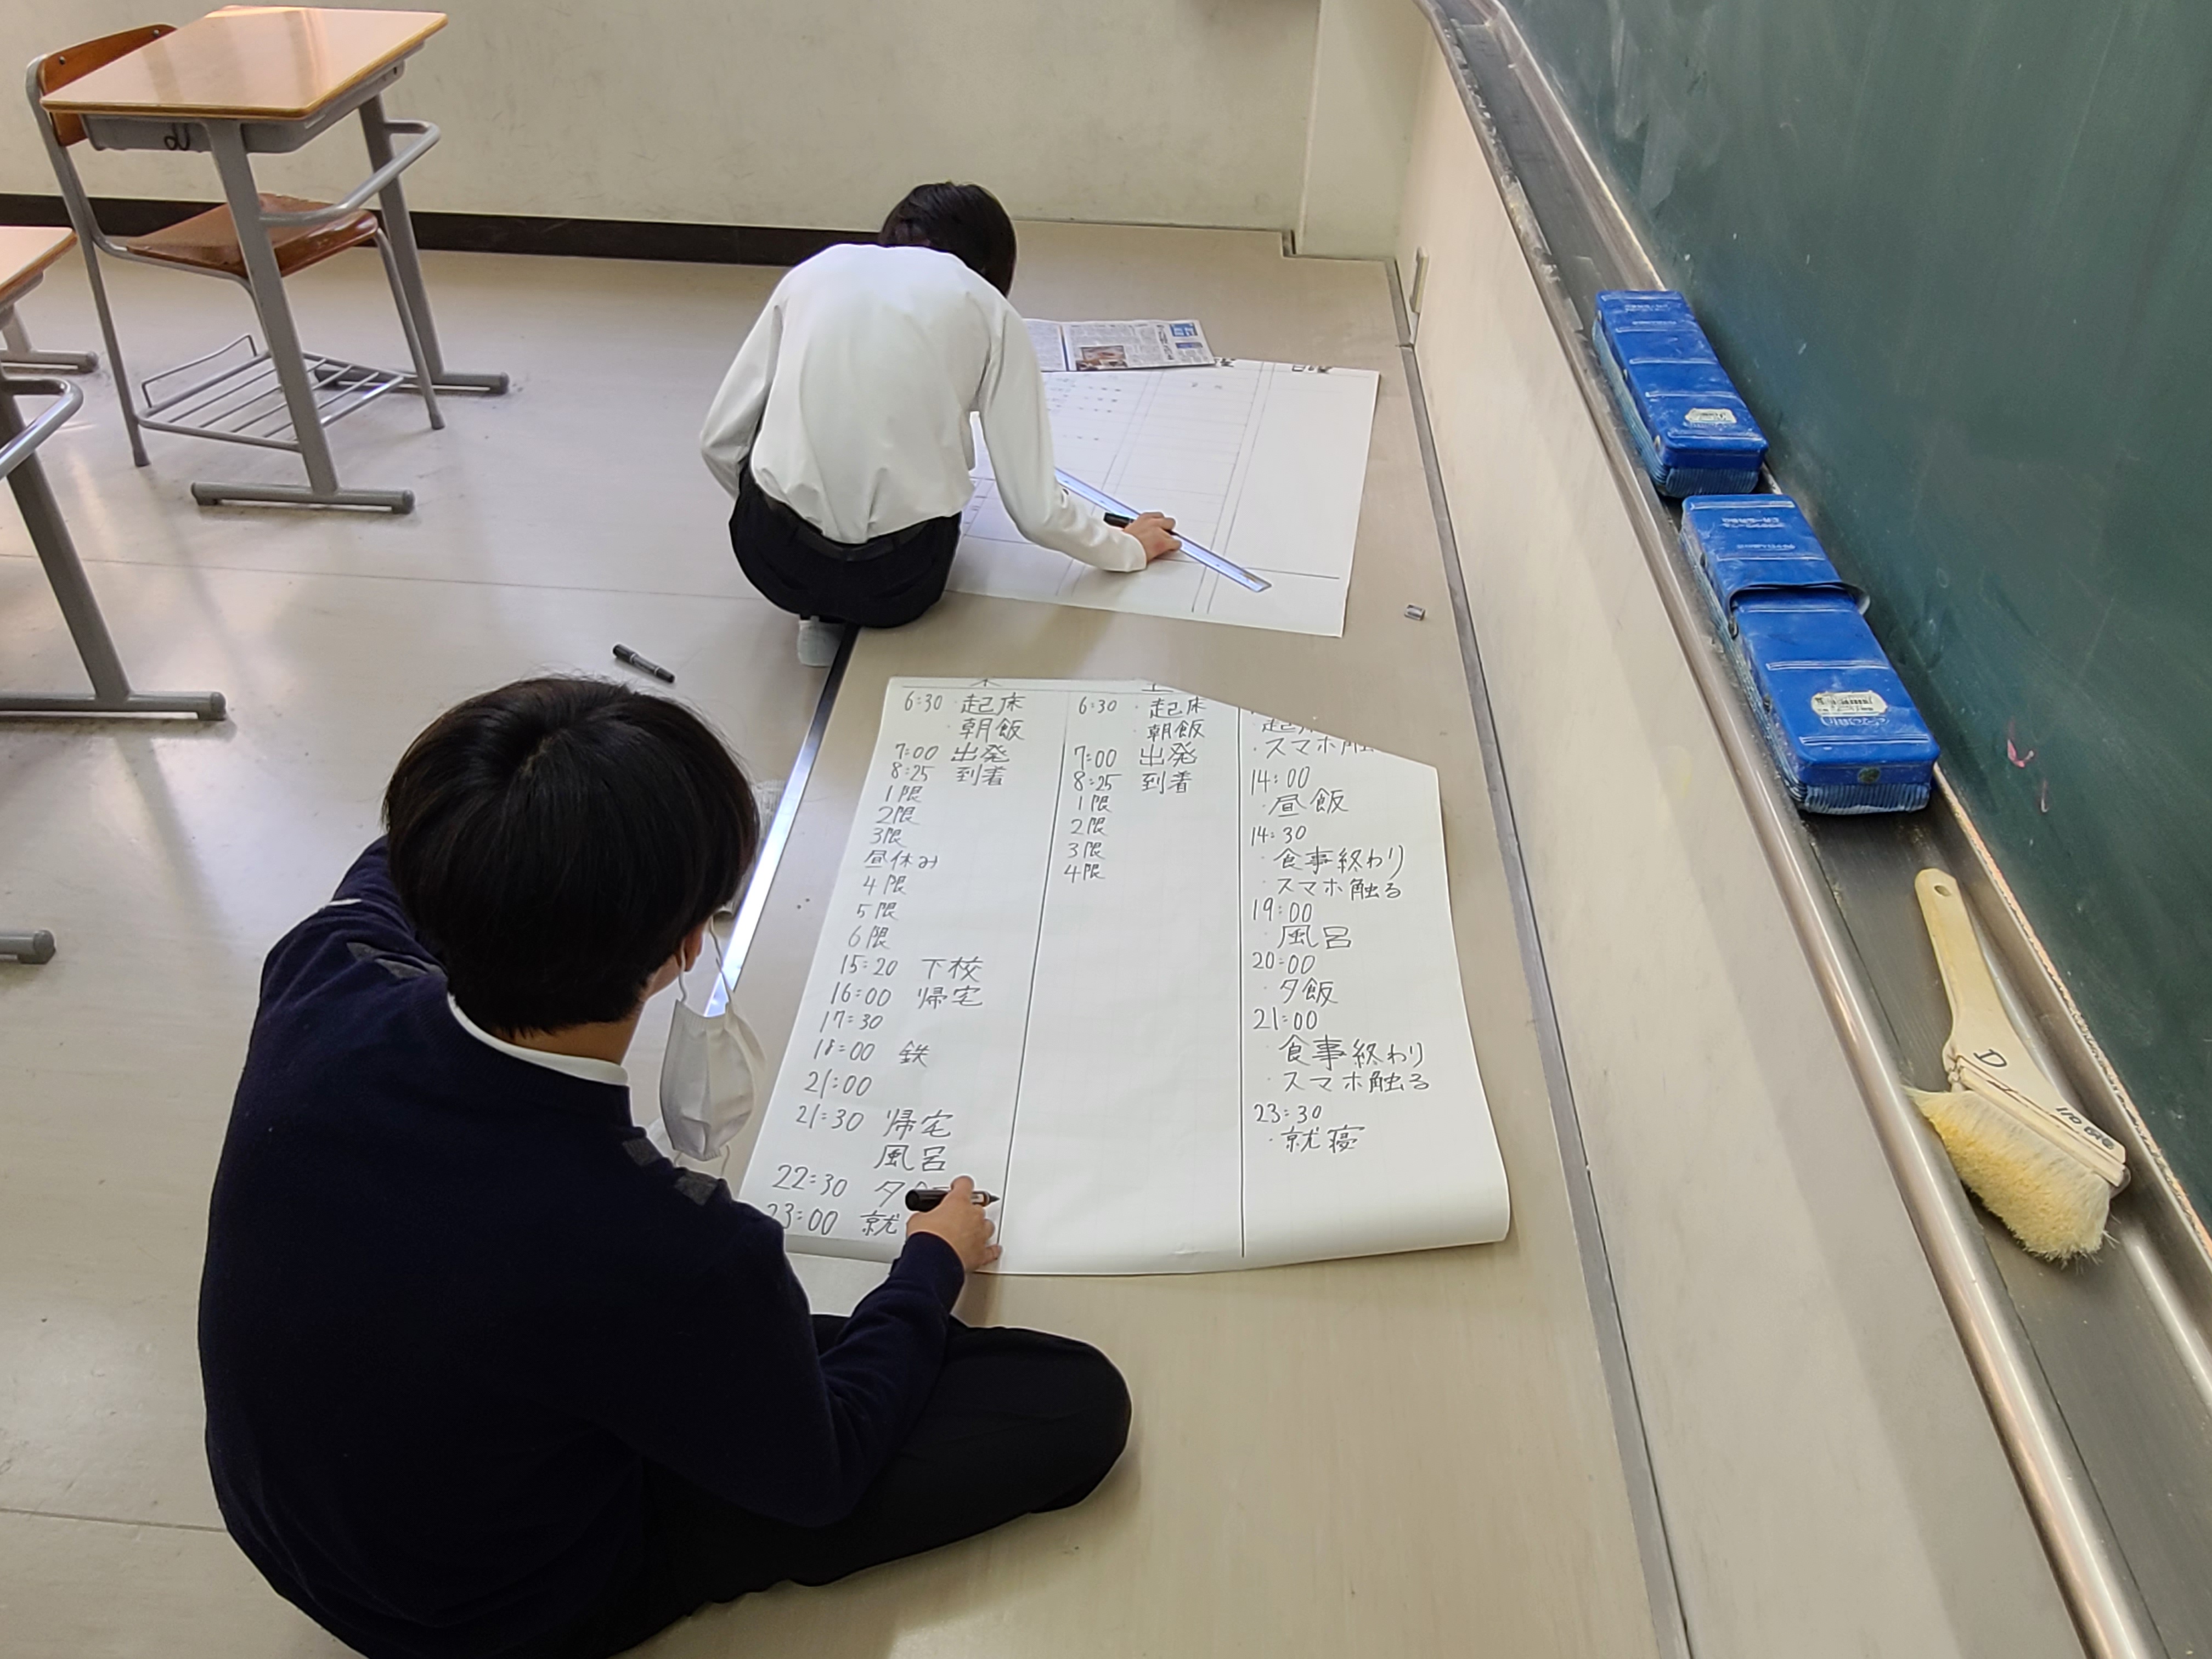 6:30 起床
朝飯
7:00 出発
8:25 到着
1限
2限
3限
昼休み
4限
5限
6限
15:20 下校
16:00 帰宅
17:30
18:00 鉄
21:00
21:30 帰宅
風呂
22:30 夕
23:00 就
6:30 ・起床
・朝飯
7:00 出発
8:25 到着
1限
2限
3限
4限
・スマホ触
14:00
・昼飯
14:30
・食事終わり
・スマホ触る
19:00
・風呂
20:00
・夕飯
21:00
・食事終わり
・スマホ触る
23:30
・就寝
D